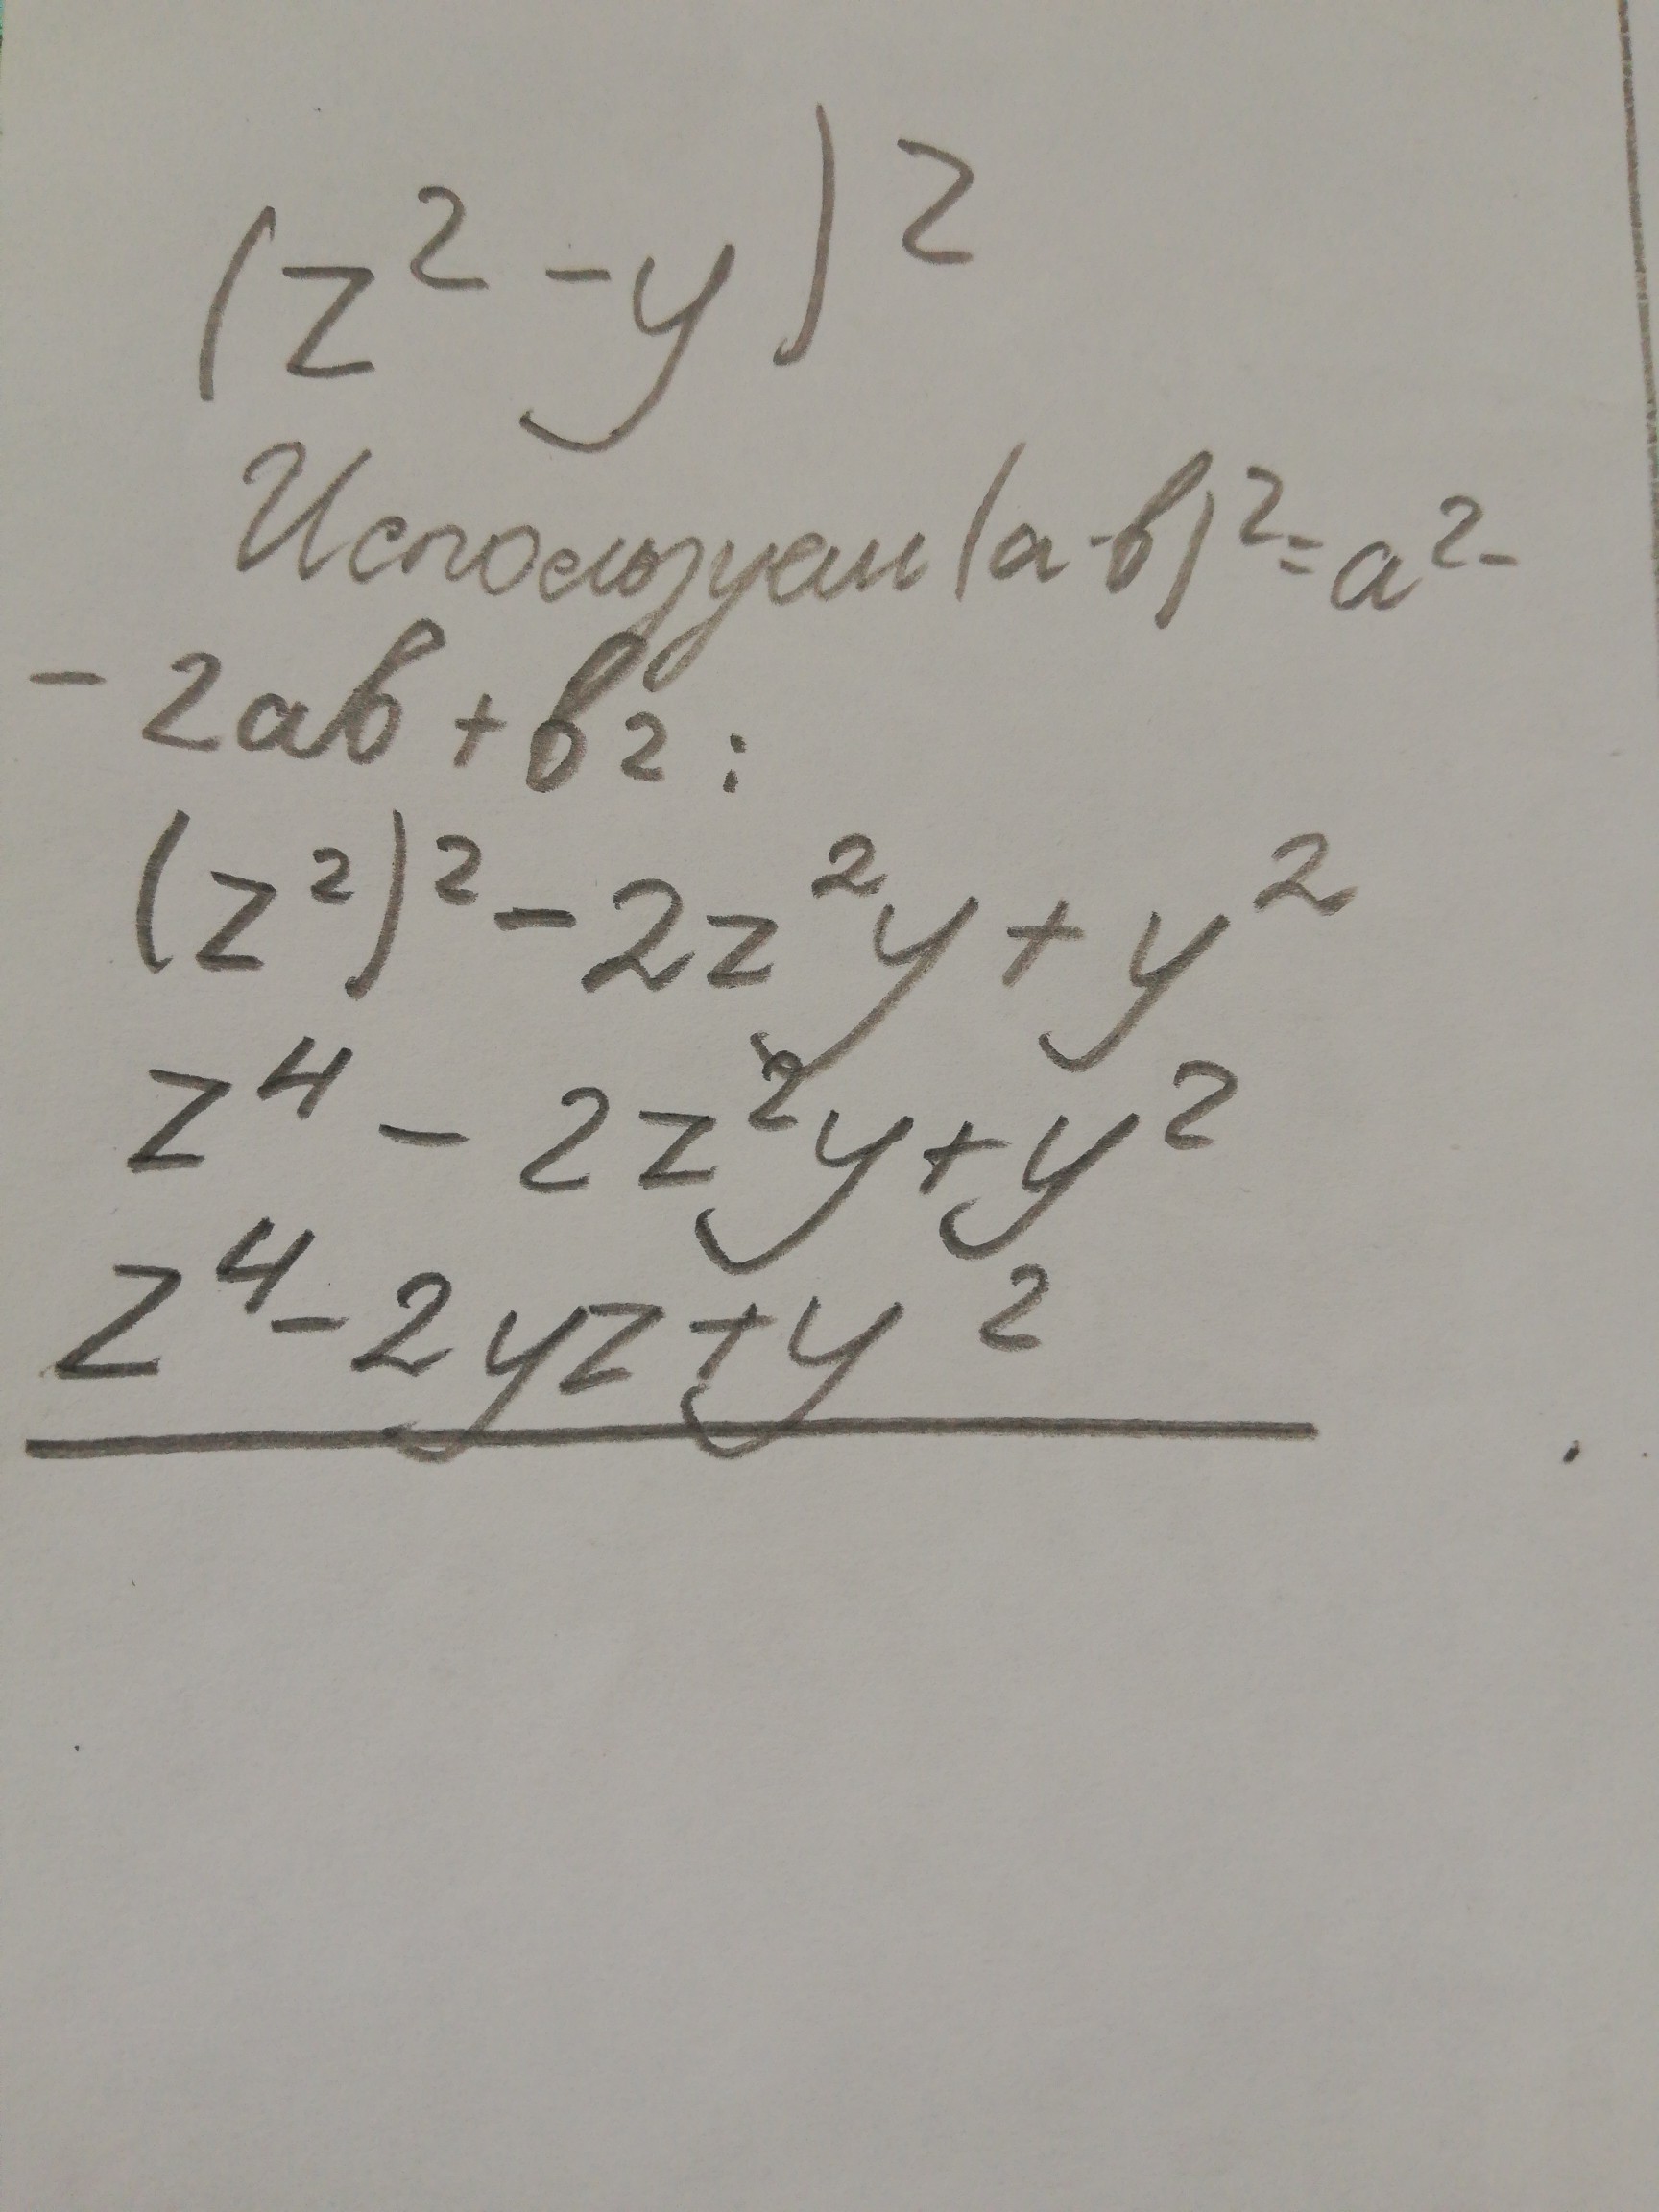 (z² - y)²
Используем (a-b)² = a² -
- 2ab + b2 :
(z²)² - 2z²y + y²
z⁴ - 2z²y + y²
z⁴ - 2yz + y²